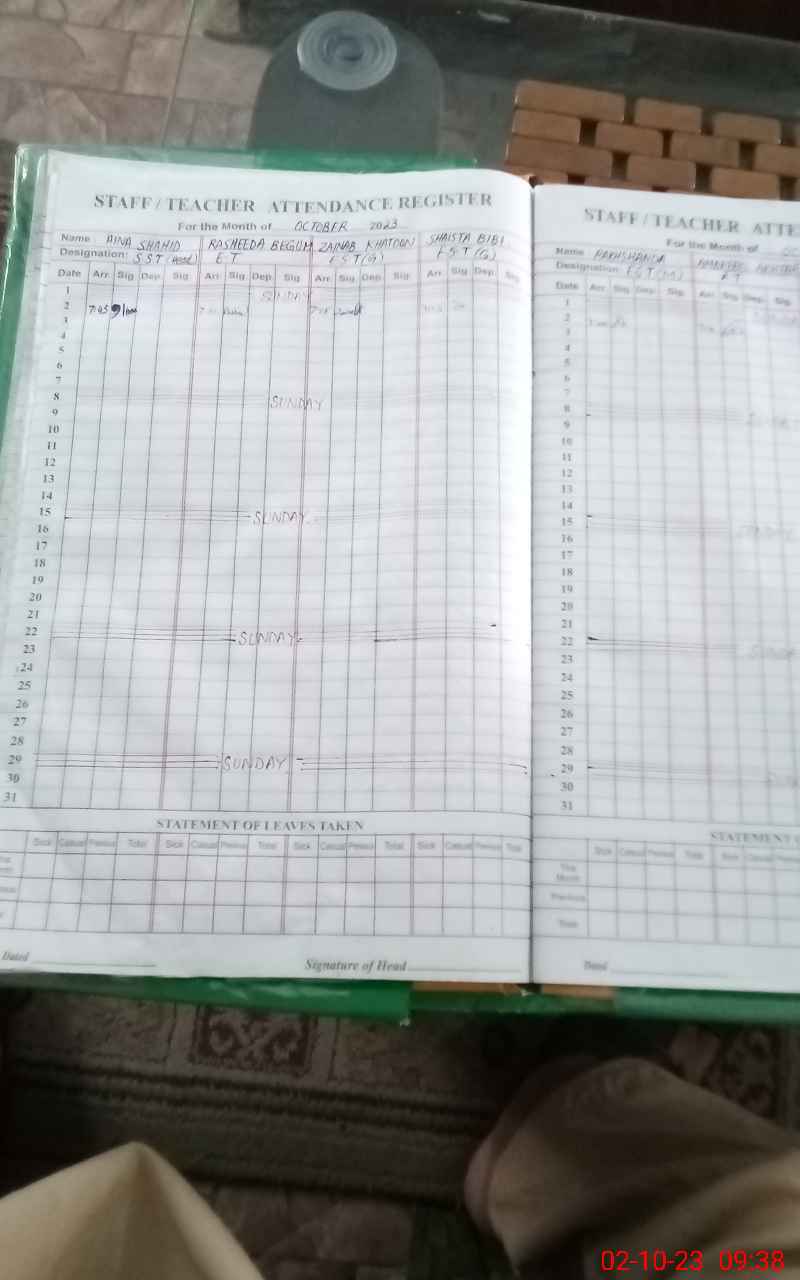 STAFF / TEACHER ATTENDANCE REGISTER
For the Month of OCTOBER 2023
Name AINA SHAHID RASHEEDA BEGUM ZAINAB KHATOON SHAISTA BIBI
Designation: S.S.T (Head) E.T E S T (G) E S T (G)
Date Arr. Sig. Dep. Sig. Arr. Sig. Dep. Sig. Arr. Sig. Dep. Sig. Arr. Sig. Dep. Sig.
1 SUNDAY
2 7:45
3
4
5
6
7
8 SUNDAY
9
10
11
12
13
14
15 SUNDAY
16
17
18
19
20
21
22 SUNDAY
23
24
25
26
27
28
29 SUNDAY
30
31
STATEMENT OF LEAVES TAKEN
Sick Casual Previous Total Sick Casual Previous Total Sick Casual Previous Total Sick Casual Previous Total
Dated
Signature of Head
STAFF / TEACHER ATTE
For the Month of OC
Name RAKHSHANDA
Designation E S T (M)
Date Arr. Sig. Dep. Sig. Arr. Sig. Dep. Sig.
1 SUNDAY
2
3
4
5
6
7
8
9
10
11
12
13
14
15 SUNDAY
16
17
18
19
20
21
22 SUNDAY
23
24
25
26
27
28
29
30
31
STATEMENT
Sick Casual Previous Total Sick Casual Previous
This Month
Previous
Total
Dated
02-10-23 09:38